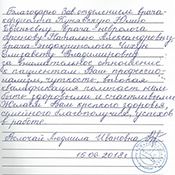 Благодарю зав. отделением врача-
кардиолога
Евгеньевну врача-невролога
Наталию Александровну,
врача-эндокринолога
Елизавету Владимировну
за внимательное отношение
к пациентам. Ваш професси-
онализм, чуткость, высокая
квалификация помогает нам
быть здоровыми и счастливыми.
Желаем Вам крепкого здоровья,
семейного благополучия, успехов
в работе.
Людмила Ивановна
15.06.2018г.